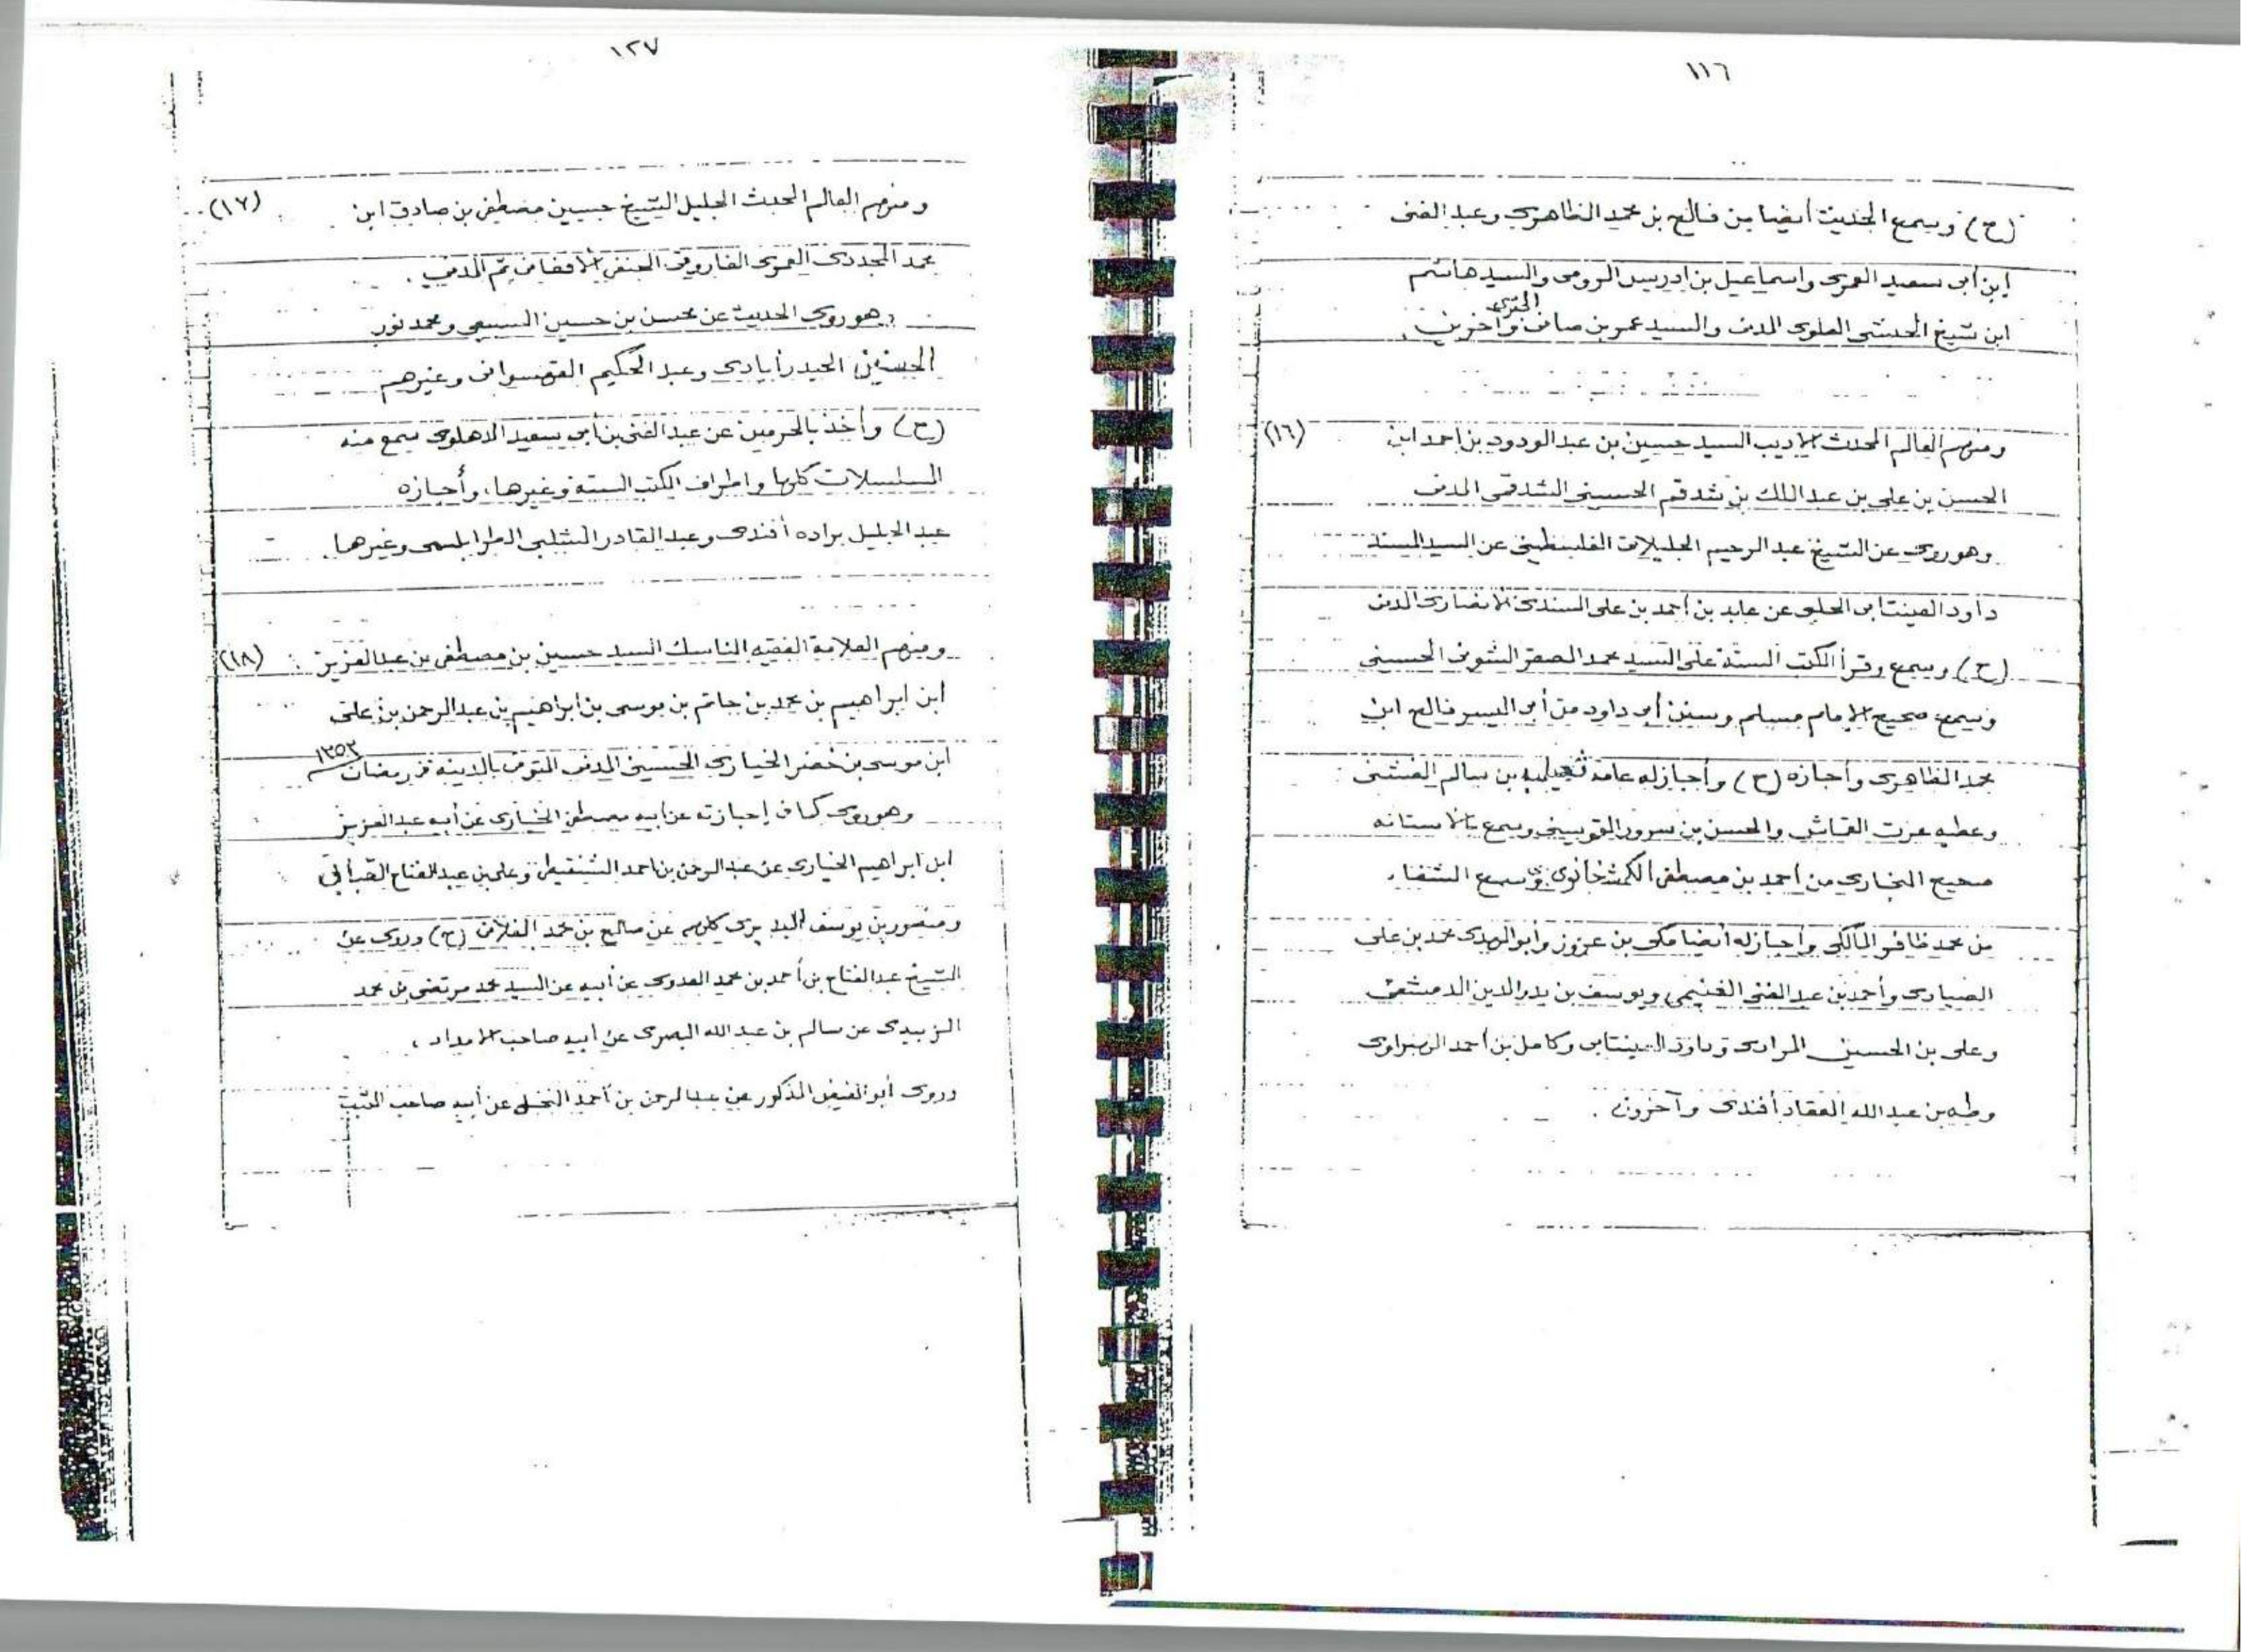 ١١٦
(ح) وسمع الحديث أيضا من فالح بن محمد الظاهري وعبد الغنى
ابن أبى سعيد العمرى واسماعيل بن ادريس الرومى والسيد هاشم
ابن شيخ الحبشى العلوى المدنى والسيد عمر بن صافى وآخرين .
ومنهم العالم المحدث الاديب السيد حسين بن عبد الودود بن احمد ابن (١٦)
الحسن بن على بن عبد الملك بن شدقم الحسينى الشدقمى المدنى
وهو روى عن الشيخ عبد الرحيم الفلسطينى عن السيد المسند
داود العينتابى الحلبى عن عابد بن أحمد بن على السندى الانصارى المدنى
(ح) وسمع وقرأ الكتب الستة على السيد محمد الصقر الشونى الحسينى
وسمع صحيح الإمام مسلم وسنن أبى داود من أبى اليسر فالح ابن
محمد الظاهرى وأجازه (ح) وأجاز له عامة بن سالم الفشنى
وعطيه عزت القاش والحسن بن سرور القويسنى وسمع بالاستانه
صحيح البخارى من أحمد بن مصطفى الكمشخانوى وسمع الشفاء
من محمد ظافر المالكى وأجاز له أيضا مكى بن عزوز وأبو الهدى محمد بن على
الصيادى وأحمد بن عبد الغنى الغنيمى ويوسف بن بدر الدين الدمشقى
وعلى بن الحسين المرادى وداود العينتابى وكامل بن أحمد الهبراوى
وطه بن عبد الله العقاد أفندى وآخرون .
١٢٧
ومنهم العالم المحدث الجليل الشيخ حسين مصطفى بن صادق ابن (١٧)
محمد المجددى العمرى الفاروقى الحنفى الافغانى ثم المدنى .
وهو روى الحديث عن محسن بن حسين السبيعى ومحمد نور
الحسنين الحيدرأبادى وعبد الحكيم القهسوانى وغيرهم
(ح) وأخذ بالحرمين عن عبد الغنى بن أبى سعيد الدهلوى سمع منه
المسلسلات كلها واطراف الكتب الستة وغيرها، وأجازه
عبد الجليل براده أفندى وعبد القادر الشلبى الطرابلسى وغيرهما .
ومنهم العلامة الفقيه الناسك السيد حسين بن مصطفى بن عبد العزيز (١٨)
ابن ابراهيم بن محمد بن حاتم بن موسى بن ابراهيم بن عبد الرحمن بن على
ابن موسى بن خضر الخيارى الحسينى المدنى المتوفى بالمدينة فى رمضان ١٣٥٣
وهو روى كما فى إجازته عن أبيه مصطفى الخيارى عن أبيه عبد العزيز
ابن ابراهيم الخيارى عن عبد الرحمن بن احمد الشنقيطى وعلى بن عبد الفتاح القبانى
ومنصور بن يوسف البديرى كلهم عن صالح بن محمد الفلانى (ح) وروى عن
الشيخ عبد الفتاح بن أحمد بن محمد العدوى عن أبيه عن السيد محمد مرتضى بن محمد
الزبيدى عن سالم بن عبد الله البصرى عن أبيه صاحب الامداد ،
وروى أبو الفيض المذكور عن عبد الرحمن بن أحمد النخلى عن أبيه صاحب الثبت